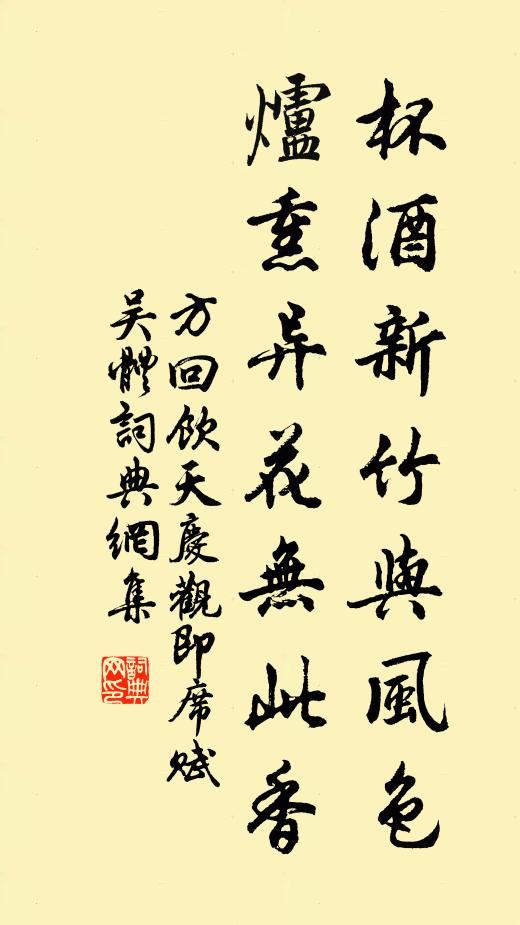 杯酒新竹與風色
爐熏异花無此香
方回飲天慶觀即席賦
吴體詞典網集
詞典
网印